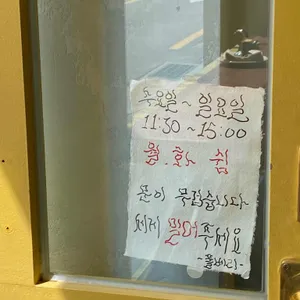 수요일~일요일
11:30~15:00
월.화 쉼
문이 무겁습니다
세게 밀어주세요